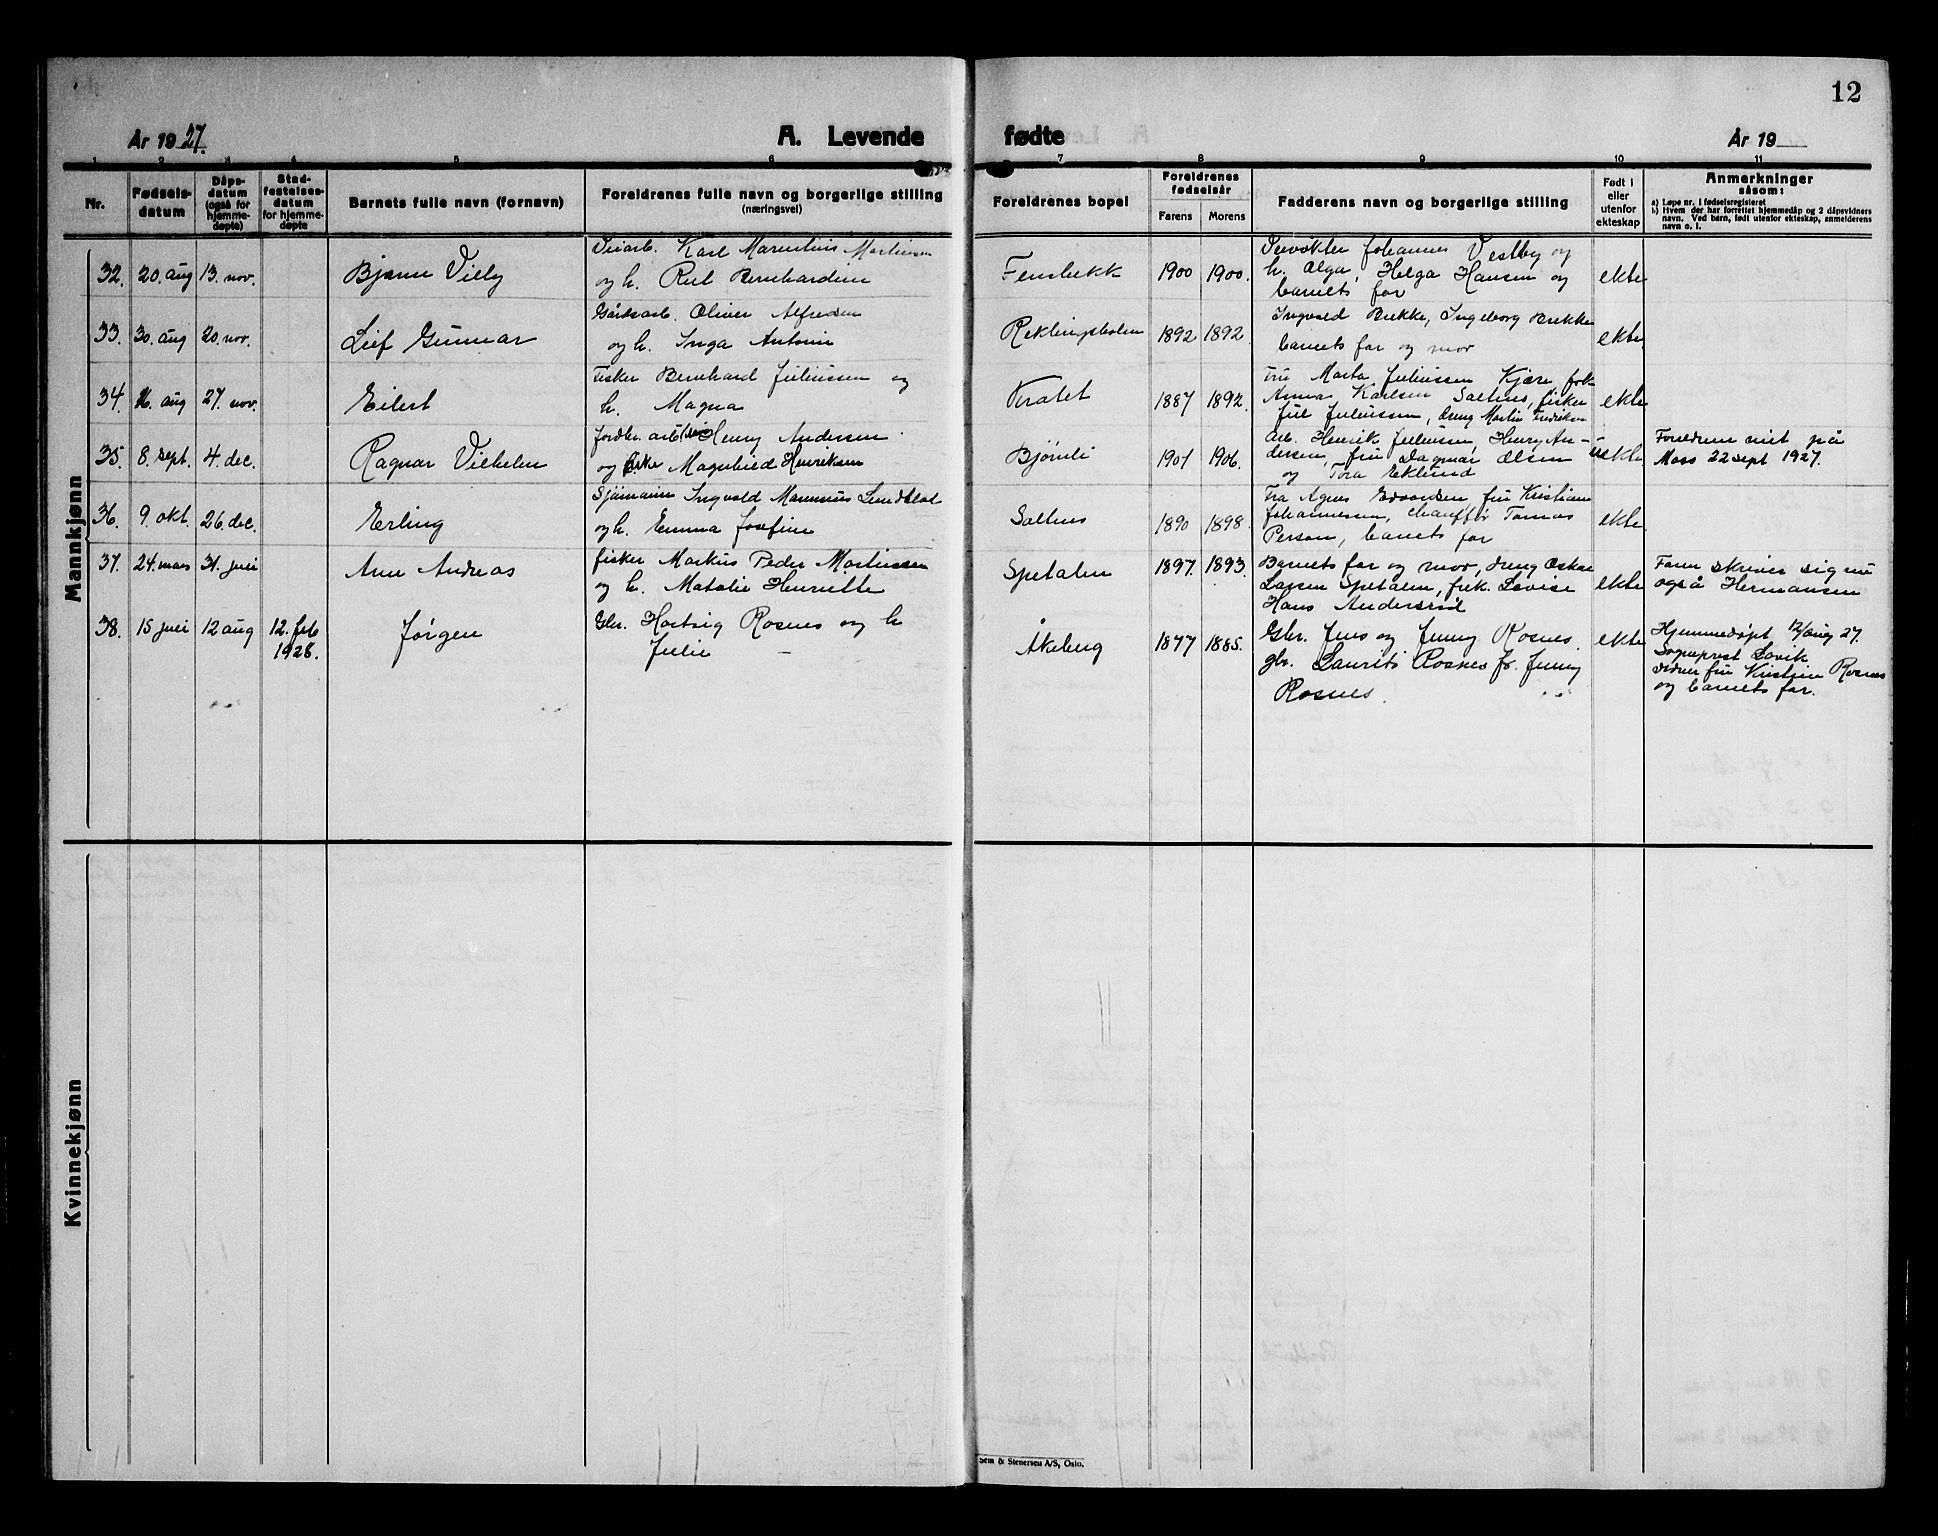 12
År 1927.
A. Levende
fødte
År 19
1 2 3 4 5 6 7 8 9 10 11
Nr.
Fødsels-
datum
Dåps-
datum
(også for
hjemme-
døpte)
Stad-
festelses-
datum
for hjemme-
døpte
Barnets fulle navn (fornavn)
Foreldrenes fulle navn og borgerlige stilling
(næringsvei)
Foreldrenes bopel
Foreldrenes
fødselsår
Farens Morens
Fadderens navn og borgerlige stilling
Født i
eller
utenfor
ekteskap
Anmerkninger
såsom:
a) Løpe nr. i fødselsregisteret
b) Hvem der har forrettet hjemmedåp og 2 dåpsvidners
navn. Ved barn, født utenfor ekteskap, anmelderens
navn o. l.
Mannkjønn
32. 20. aug 13. nov. Bjarne Villy
Veiarb. Karl Marentius Martinsen
og h. Rut Bernhardine
Fensbekk 1900 1900.
Johannes Vestby og
h. Olga, Helga Hansen og
barnets far
ekte
33. 30. aug 20. nov. Leif Gunnar
Gårdsarb. Oliver Alfredsen
og h. Inga Antonie
Reklingsholen 1892 1892.
Ingvald Brekke, Ingeborg Brekke
barnets far og mor
ekte
34. 16. aug 27. nov. Eilert
Fisker Bernhard Juliussen og
h. Magna
Kratet 1887 1892.
Fru Marta Juliussen Kjære, frk.
Annas Karlsen Saltnes, fisker
Jul Juliussen, dreng Martin Fredriksen
ekte
35. 8. sept. 4. dec. Ragnar Vilhelm
Jordbr. arb. Henry Andersen
og Magnhild Henriksen
Bjørnli 1907 1906.
Arb. Henrik Juliussen, Henry An-
dersen, fru Dagmar Olsen
og Tora Eklund
uekte
Foreldrene viet på
Moss 22 sept 1927.
36. 9. okt. 26. dec. Erling
Sjømann Ingvald Marinius Lundblad
og h. Emma Josefine
Saltnes 1890 1898.
Fra Agnes Edvardsen, fru Kristiane
Johannessen, chauffør Tomas
Person, barnets far
ekte
37. 24. mars 31. juli Arne Andreas
fisker Markus Peder Martinssen
og h. Natalie Henriette
Spetalen 1897. 1893.
Barnets far og mor, dreng Oskar
Larsen Spetalen, frk. Lovise
Hans Andersrød
ekte
Faren skriver sig nu
også Hermansen
38. 15 juli 12 aug 12. feb
1928. Jørgen
Gbr. Hartvig Rosnes og h
Julie
Åkeberg 1877 1885.
Gbr. Jens og Jenny Rosnes.
gbr. Laurits Rosnes fr. Jenny
Rosnes.
ekte
Hjemmedøpt 12/aug 27.
Sogneprest Løvik
vidner fru Kristine Rosnes
og barnets far.
Kvinnekjønn
Sem & Stenersen A/S, Oslo.